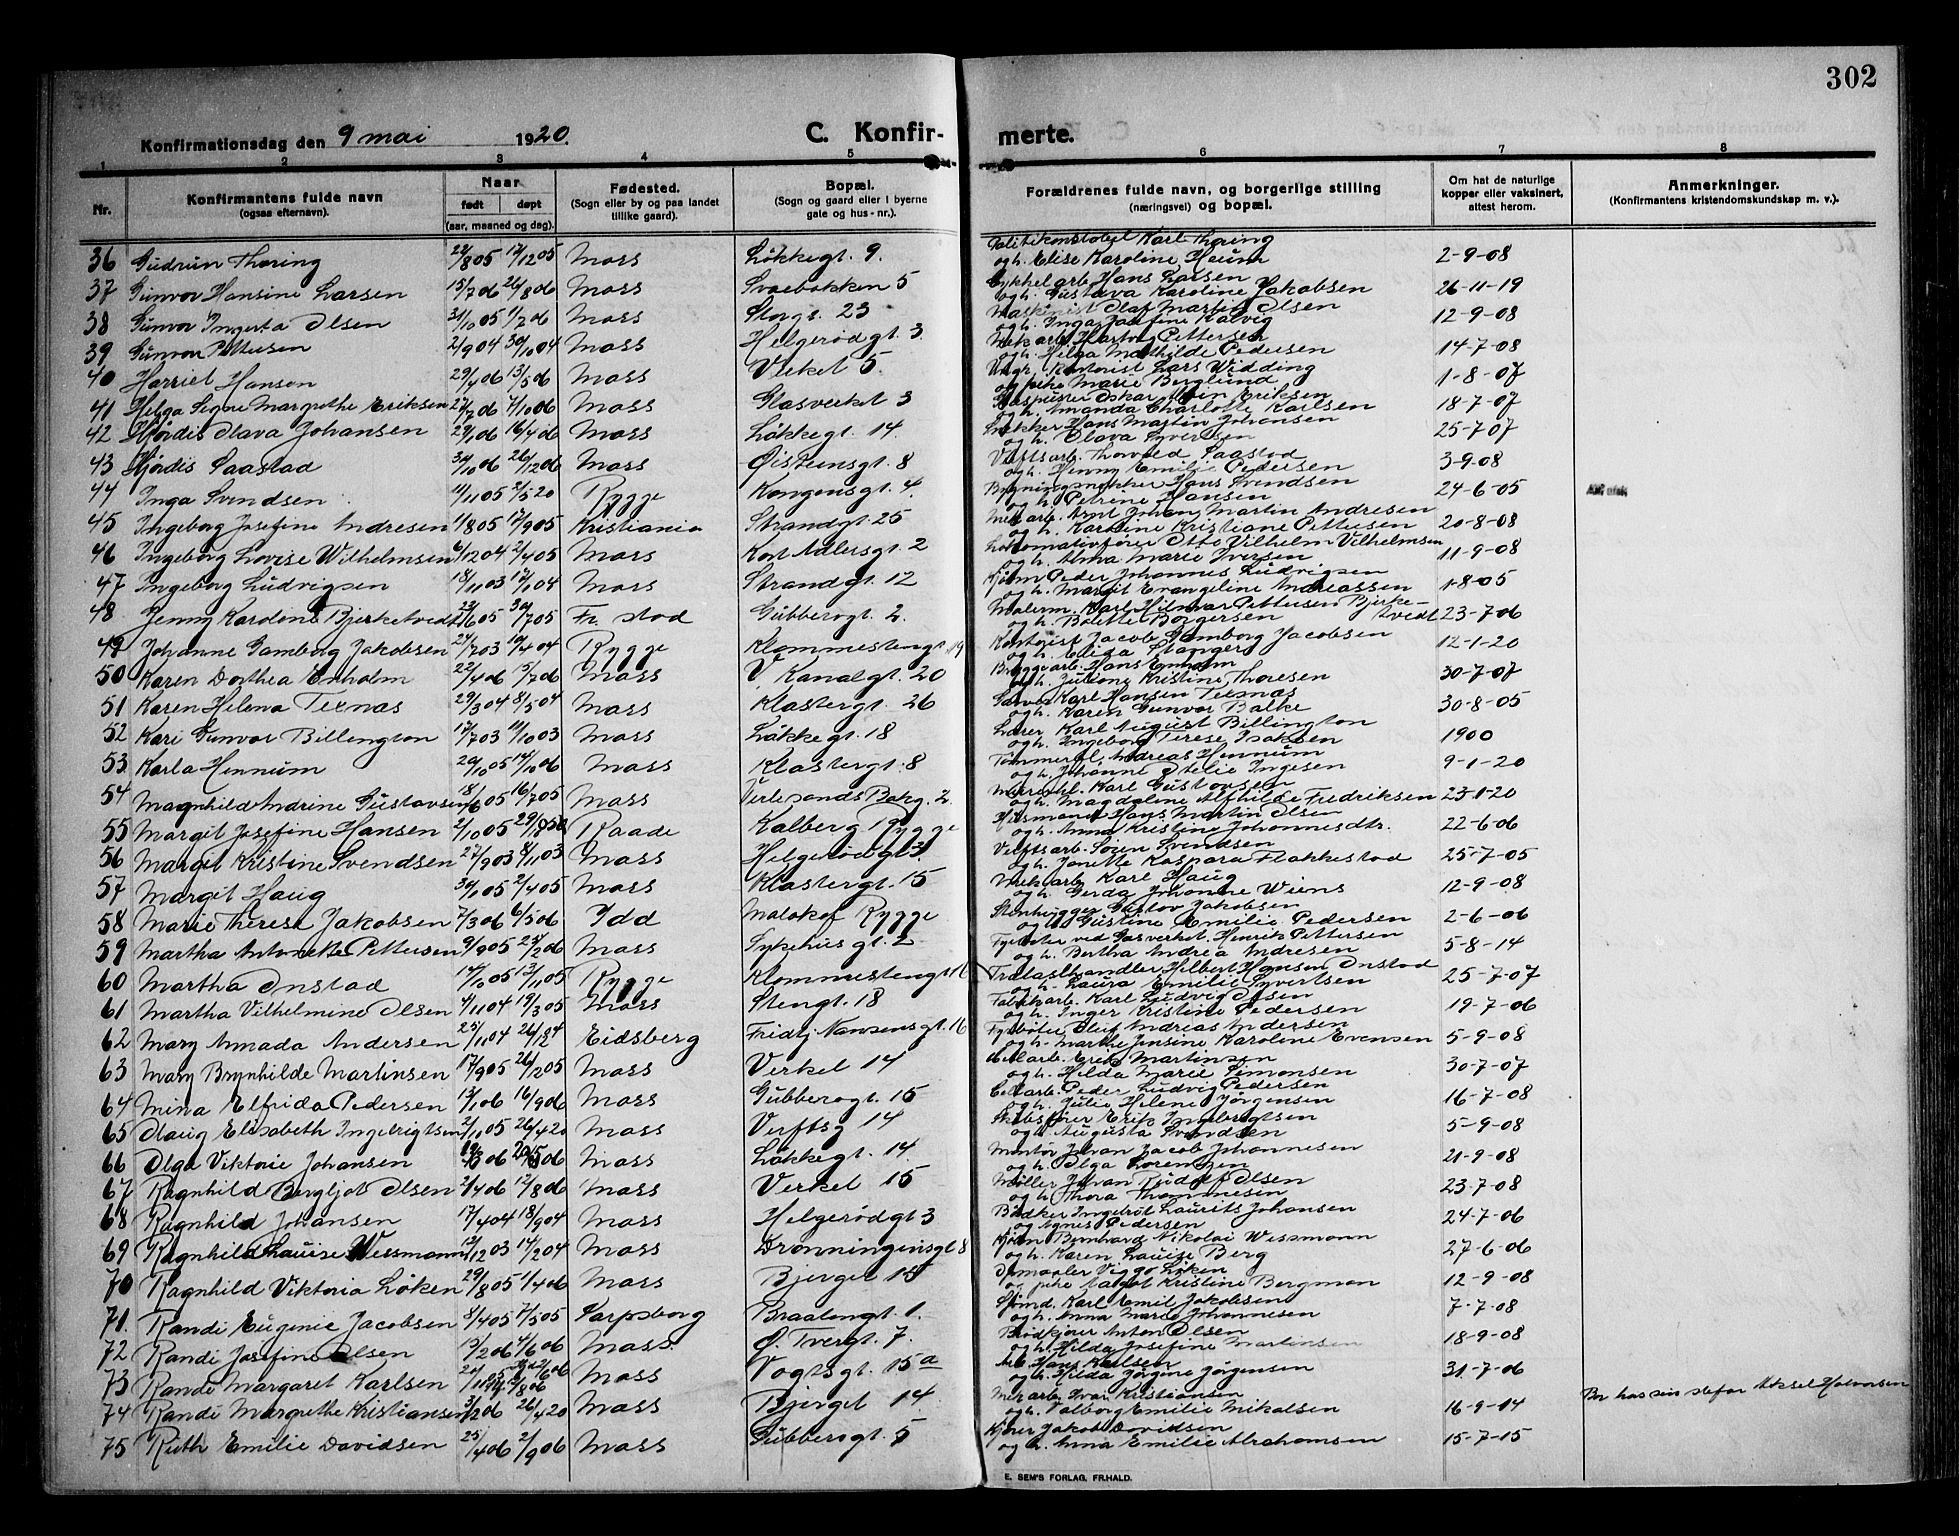 302
Konfirmationsdag den 9 mai 1920.
C. Konfirmerte.
1 2 3 4 5 6 7 8
Nr.
Konfirmantens fulde navn
(ogsaa efternavn).
Naar
født døpt
(aar, maaned og dag).
Fødested.
(Sogn eller by og paa landet
tillike gaard).
Bopæl.
(Sogn og gaard eller i byerne
gate og hus-nr.).
Forældrenes fulde navn, og borgerlige stilling
(næringsvei) og bopæl.
Om hat de naturlige
kopper eller vaksinert,
attest herom.
Anmerkninger.
(Konfirmantens kristendomskundskap m. v.).
36 Gudrun Thoring 22/8 05 17/12 05 Moss Løkkegt. 9. Politikonstabel Karl Thoring
og h. Elise Karoline Haum 2-9-08
37 Gunvor Hansine Larsen 15/7 06 26/8 06 Moss Svaebakken 5 Cykkelarb. Hans Larsen
og h. Gustava Karoline Jakobsen 26-11-19
38 Gunvor Ingerta Olsen 31/10 05 1/7 06 Moss Storgt. 23 Maskinist Olaf Martin Olsen
og h. Inga Josefine Kalvig 12-9-08
39 Gunvor Pettersen 2/9 04 30/10 04 Moss Helgerødgt. 3 Mek arb. Hartvig Pettersen
og h. Helga Mathilde Pedersen 14-7-08
40 Harriet Hansen 29/4 06 13/5 06 Moss Verket 5. Ungk. kontorist Lars Widding
og pike Marie Berglund 1-8-07
41 Helga Signe Margrethe Eriksen 27/7 06 7/10 06 Moss Glasverket 3 Glaspuster Oskar Eriksen
og h. Amanda Charlotte Karlsen 18-7-07
42 Hjørdis Olava Johansen 29/1 06 16/4 06 Moss Løkkegt. 14. Snekker Hans Martin Johansen
og h. Olava Syversen 25-7-07
43 Hjørdis Saastad 30/10 06 26/12 06 Moss Øisteinsgt. 8 Verftsarb. Thorvald Saastad
og h. Henny Emilie Pedersen 3-9-08
44 Inga Svendsen 11/11 05 2/5 20 Rygge Kongensgt. 4. Bygningssnekker Hans Svendsen
og h. Petrine Hansen 24-6-05
45 Ingeborg Josefine Andresen 1/8 05 17/9 05 Kristiania Strandgt. 25 Mek arb. Arnt Johan Martin Andresen
og h. Karoline Kristiane Pettersen 20-8-08
46 Ingeborg Lovise Wilhelmsen 6/12 04 2/4 05 Moss Kort Adlersgt. 2 Lokomotivfører Otto Vilhelm Vilhelmsen
og h. Alma Marie Iversen 11-9-08
47 Ingeborg Ludvigsen 18/11 03 17/1 04 Moss Strandgt. 12 Kjøbm Peder Johannes Ludvigsen
og h. Margit Evangeline Andreassen 1-8-05
48 Jenny Karoline Bjerketvedt 23/6 05 30/7 05 Fr. stad Gubberogt. 2. Malerm. Karl Hilmar Pettersen Bjerke-
og h. Bolette Borgersen tvedt 23-7-06
49 Johanne Gamborg Jakobsen 24/7 03 10/4 04 Rygge Klommestengt. 19 Kontorist Jacob Gamborg Jacobsen
og h. Elida Stanger 12-1-20
50 Karen Dorthea Enholm 22/4 06 15/7 06 Moss V. Kanalgt. 20 Bryggearb. Hans Enholm
og h. Juliane Kristine Thoresen 30-7-07
51 Karen Helena Texnæs 29/3 04 8/5 04 Moss Klostergt. 26 Garver Karl Hansen Texnæs
og h. Karen Gunvor Balke 30-8-05
52 Kari Gunvor Billington 17/7 03 11/10 03 Moss Løkkegt. 18 Lærer Karl August Billington
og h. Ingeborg Terese Isaksen 1900
53 Karla Hennum 20/10 05 14/10 06 Moss Klostergt. 8 Tømmerm. Andreas Hennum
og h. Johanne Otelie Ingesen 9-1-20
54 Magnhild Andrine Gustavsen 18/6 05 16/7 05 Moss Værlesands Bakg. 2. Karl Gustavsen
og h. Magdalene Alfhilde Fredriksen 23-1-20
55 Margit Josefine Hansen 2/10 05 Raade Kalberg Rygge Husmand Hans Martin Olsen
og h. Anna Kristine Johannesdtr. 22-6-06
56 Margit Kristine Svendsen 27/9 03 8/11 03 Moss Helgerødgt 3. Verftsarb. Søren Svendsen
og h. Janette Kaspara Flakkestad 25-7-05
57 Margit Haug 30/1 05 2/4 05 Moss Klostergt. 15 Mek arb Karl Haug
og h. Gerda Johanne Wiens 12-9-08
58 Marie Therese Jakobsen 7/3 06 6/5 06 Idd Moloket Rygge Stenhugger Gustav Jakobsen
og h. Gustine Emilie Pedersen 2-6-06
59 Martha Antonette Pettersen 9/9 05 25/2 06 Moss Sykehusgt. 2 Fyrbøter ved Gasverket. Henrik Pettersen
og h. Bertha Andrea Andresen 5-8-14
60 Martha Onstad 14/10 05 12/11 05 Rygge Klommestengt 16 Trælasthandler Helbert Hansen Onstad
og h. Laura Emilie Syvertsen 25-7-07
61 Martha Vilhelmine Olsen 4/11 04 19/3 05 Moss Stengt. 18 Fabrikarb. Karl Ludvig Olsen
og h. Inger Kristine Pedersen 19-7-06
62 Mary Amada Andersen 25/11 04 26/12 4 Eidsberg Fridtj. Nansensgt. 16 Fyrbøter Oluf Andreas Andersen
og h. Marthe Jensine Karoline Evensen 5-9-08
63 Mary Brynhilde Martinsen 17/9 05 26/12 05 Moss Verket 14 Erik Martinsen
og h. Hilda Marie Simonsen 30-7-07
64 Mina Elfrida Pedersen 13/1 06 16/9 06 Moss Gubberogt. 15 Cellarb. Peder Ludvig Pedersen
og h. Julie Helene Jørgensen 16-7-08
65 Olaug Elisabeth Ingebrigtsen 2/11 05 26/4 20 Moss Verftsg 14 Skibsfører Erik Ingebrigtsen
og h. Augusta Svendsen 5-9-08
66 Olga Viktorie Johansen 06 06 Moss Løkkegt. 14. Montør Johan Jacob Johannesen
og h. Olga Lorentzen 21-9-08
67 Ragnhild Bergljot Olsen 2/4 06 12/8 06 Moss Verket 15 Møller Johan Rudolf Olsen
og h. Thora Thommesen 23-7-08
68 Ragnhild Johansen 17/4 04 18/9 04 Moss Helgerødgt 3 Bødker Ingebrigt Laurits Johansen
og Agnes Pedersen 24-7-06
69 Ragnhild Lauise Wessmann 13/12 03 14/2 04 Moss Dronningensgt 8 Kjøbm Bernhard Nikolai Wessmann
og h. Karen Lauise Berg 27-6-06
70 Ragnhild Viktoria Løken 29/8 05 1/4 06 Moss Bjerget 15 Viggo Løken
og pike Margot Kristine Bergman 12-9-08
71. Randi Eugenie Jacobsen 8/4 05 7/5 05 Sarpsborg Braatengt. 1. Sjømd. Karl Emil Jakobsen
og h. Anna Marie Johannesen 7-7-08
72 Randi Josefine Olsen 13/2 06 4/6 06 Moss Ø. Tvergt. 7. Brødkjører Anton Olsen
og h. Hilda Josefine Martinsen 18-9-08
73 Randi Margaret Karlsen Moss Vogtsgt. 15a Arb. Hans Karlsen
og h. Hilda Jørgine Jørgensen 31-7-06
74 Randi Margrethe Kristiansen 3/12 06 26/4 20 Moss Bjerget 14 Mek arb. Ivar Kristiansen
og h. Valborg Emilie Mikalsen 16-9-14 Bor hos sin stefar Aksel Halvorsen
75 Ruth Emilie Davidsen 25/4 06 2/9 06 Moss Gubberogt. 5 Kjører Jakob Davidsen
og h. Anna Emilie Abrahamsen 15-7-15
E. SEM'S FORLAG, FR.HALD.